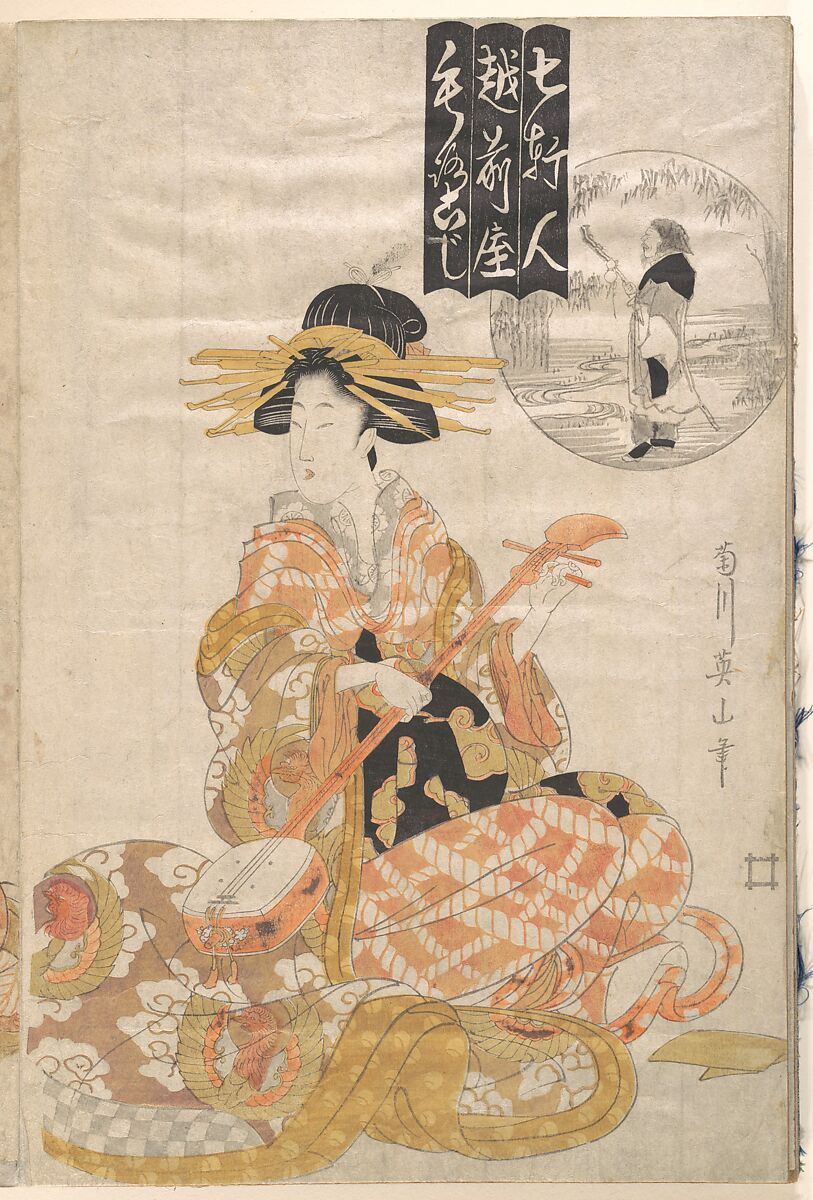 七軒人
越前屋
もろこし
菊川英山筆